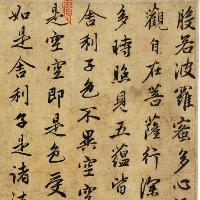 般若波羅蜜多心
觀自在菩薩行深
多時照見五蘊皆
舍利子色不異空空
是空空即是色受
如是舍利子是諸法